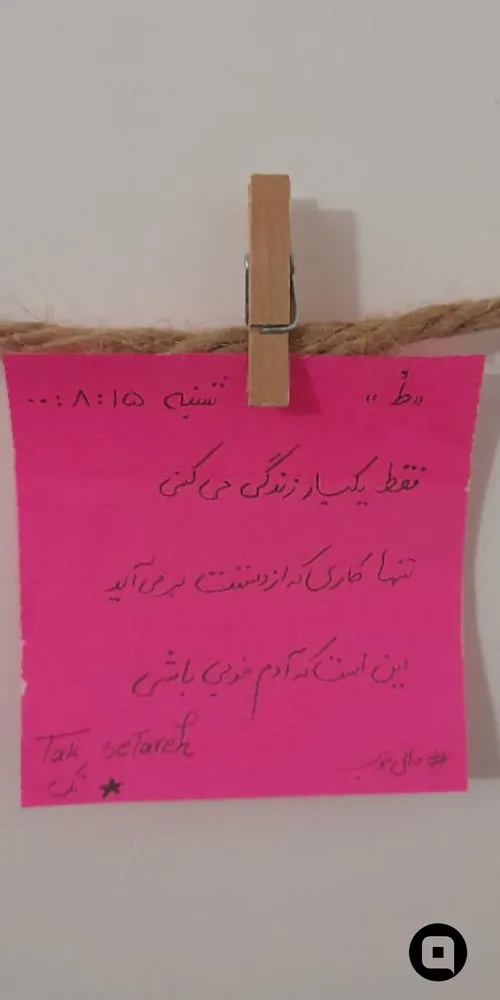 «طُ» شنبه ۸:۱۵:...
فقط یکبار زندگی می کنی
تنها کاری که از دستت بر می آید
این است که آدم خوبی باشی
#حال خوب
Tak seTareh
تک ★